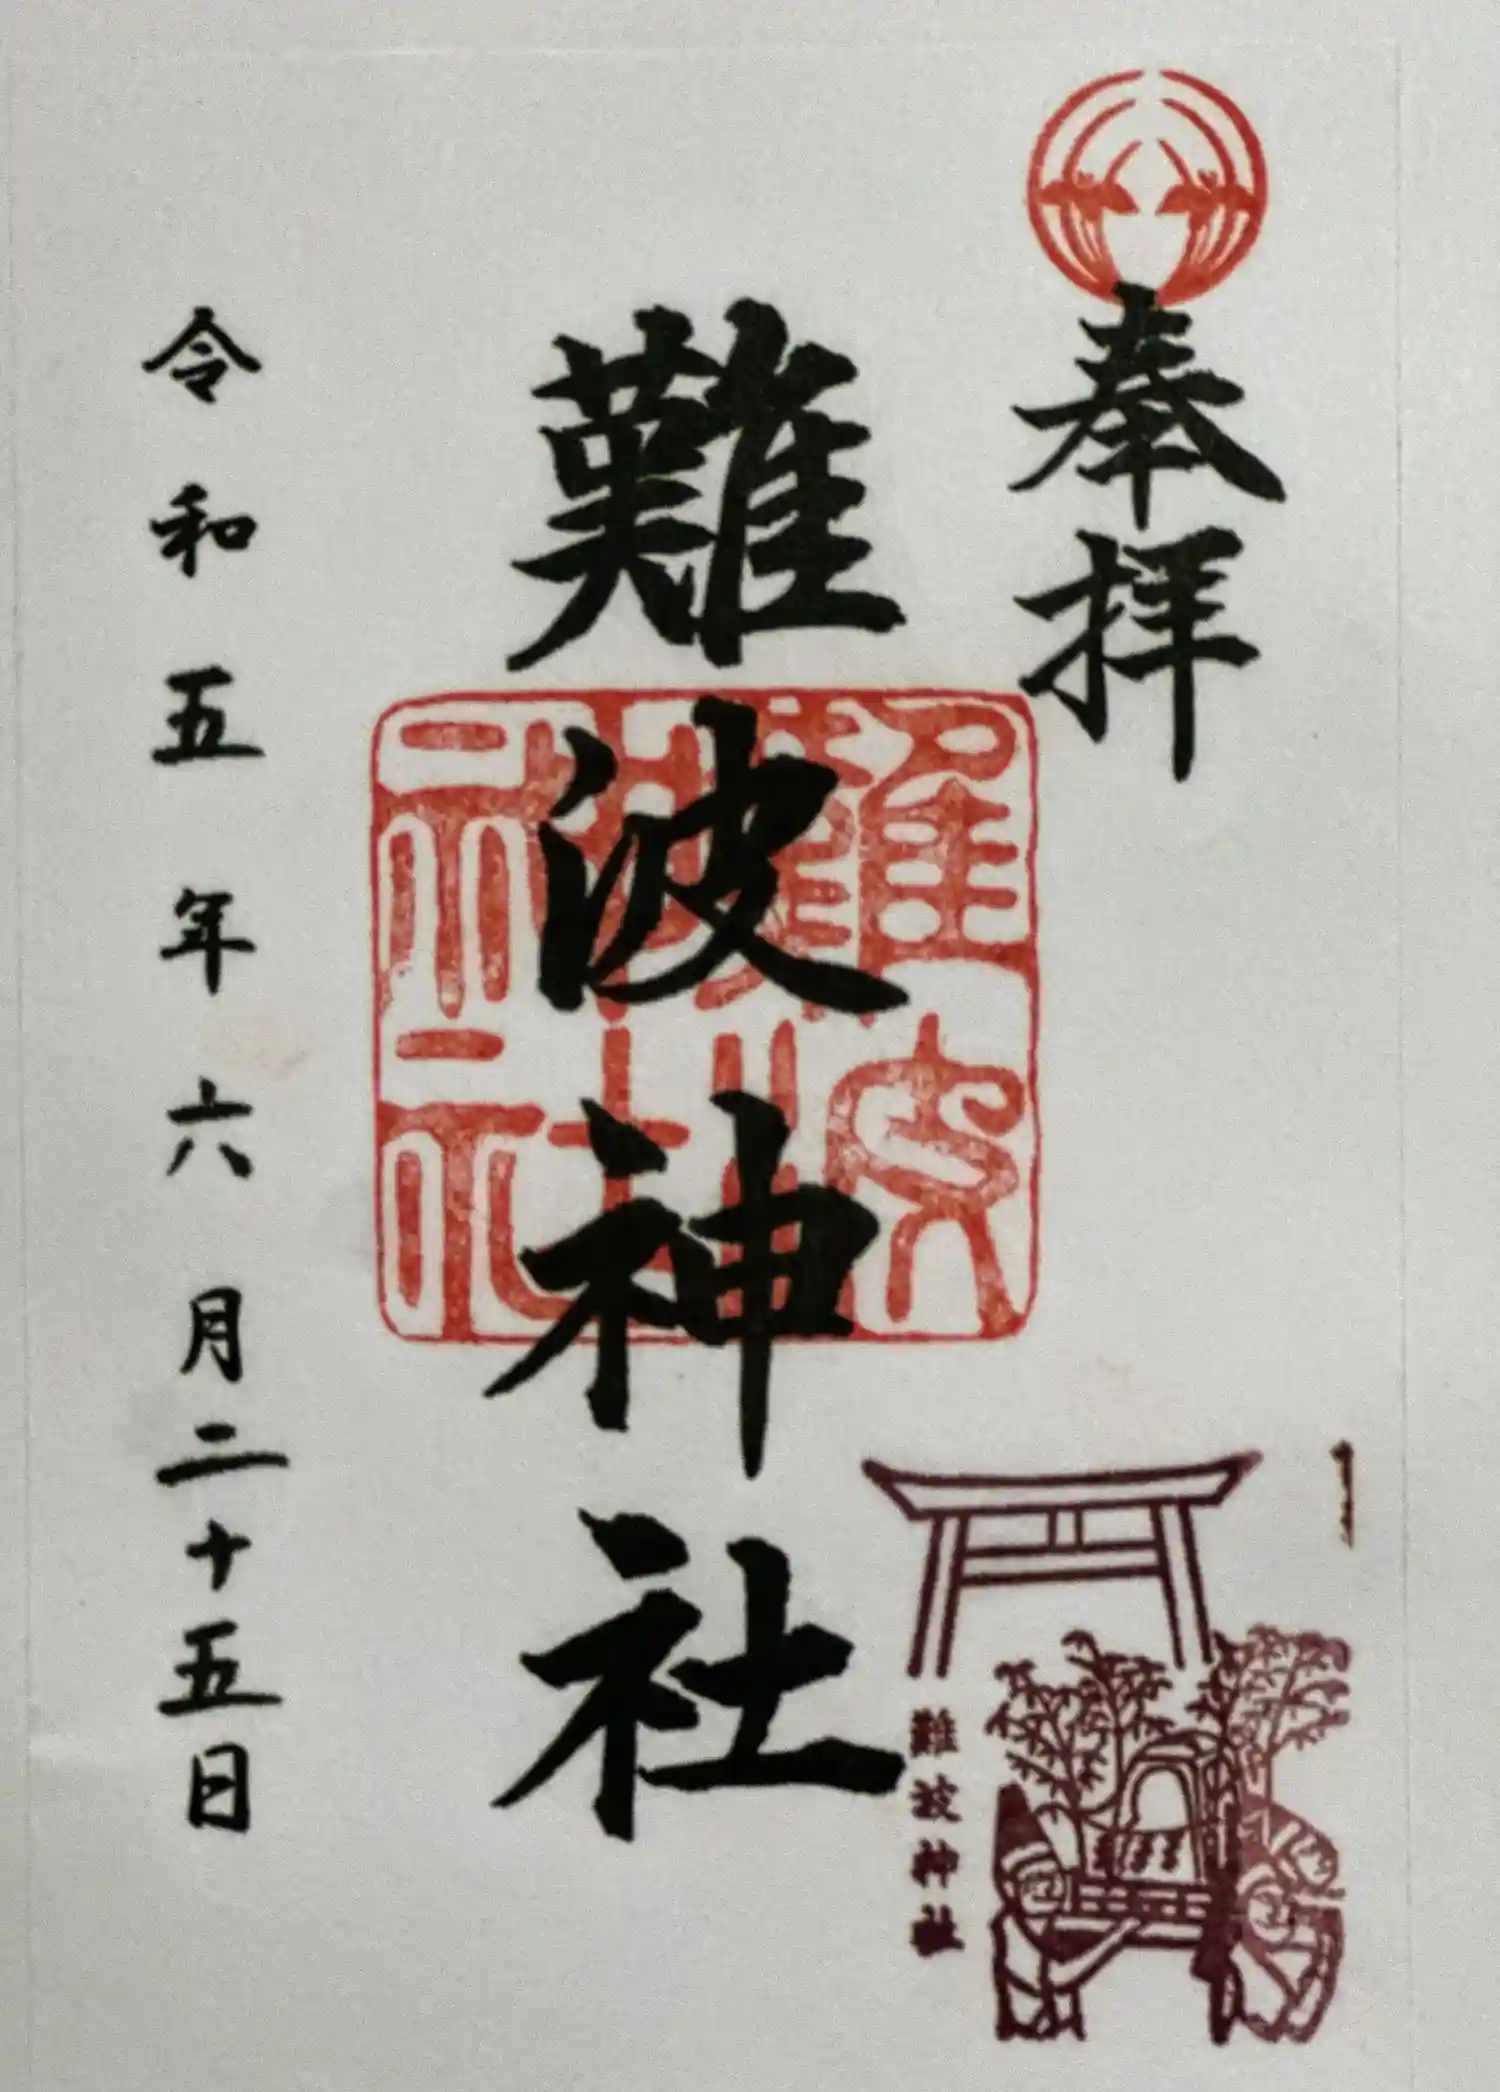 奉拝
難波神社
難波神社
令和五年六月二十五日
難波神社